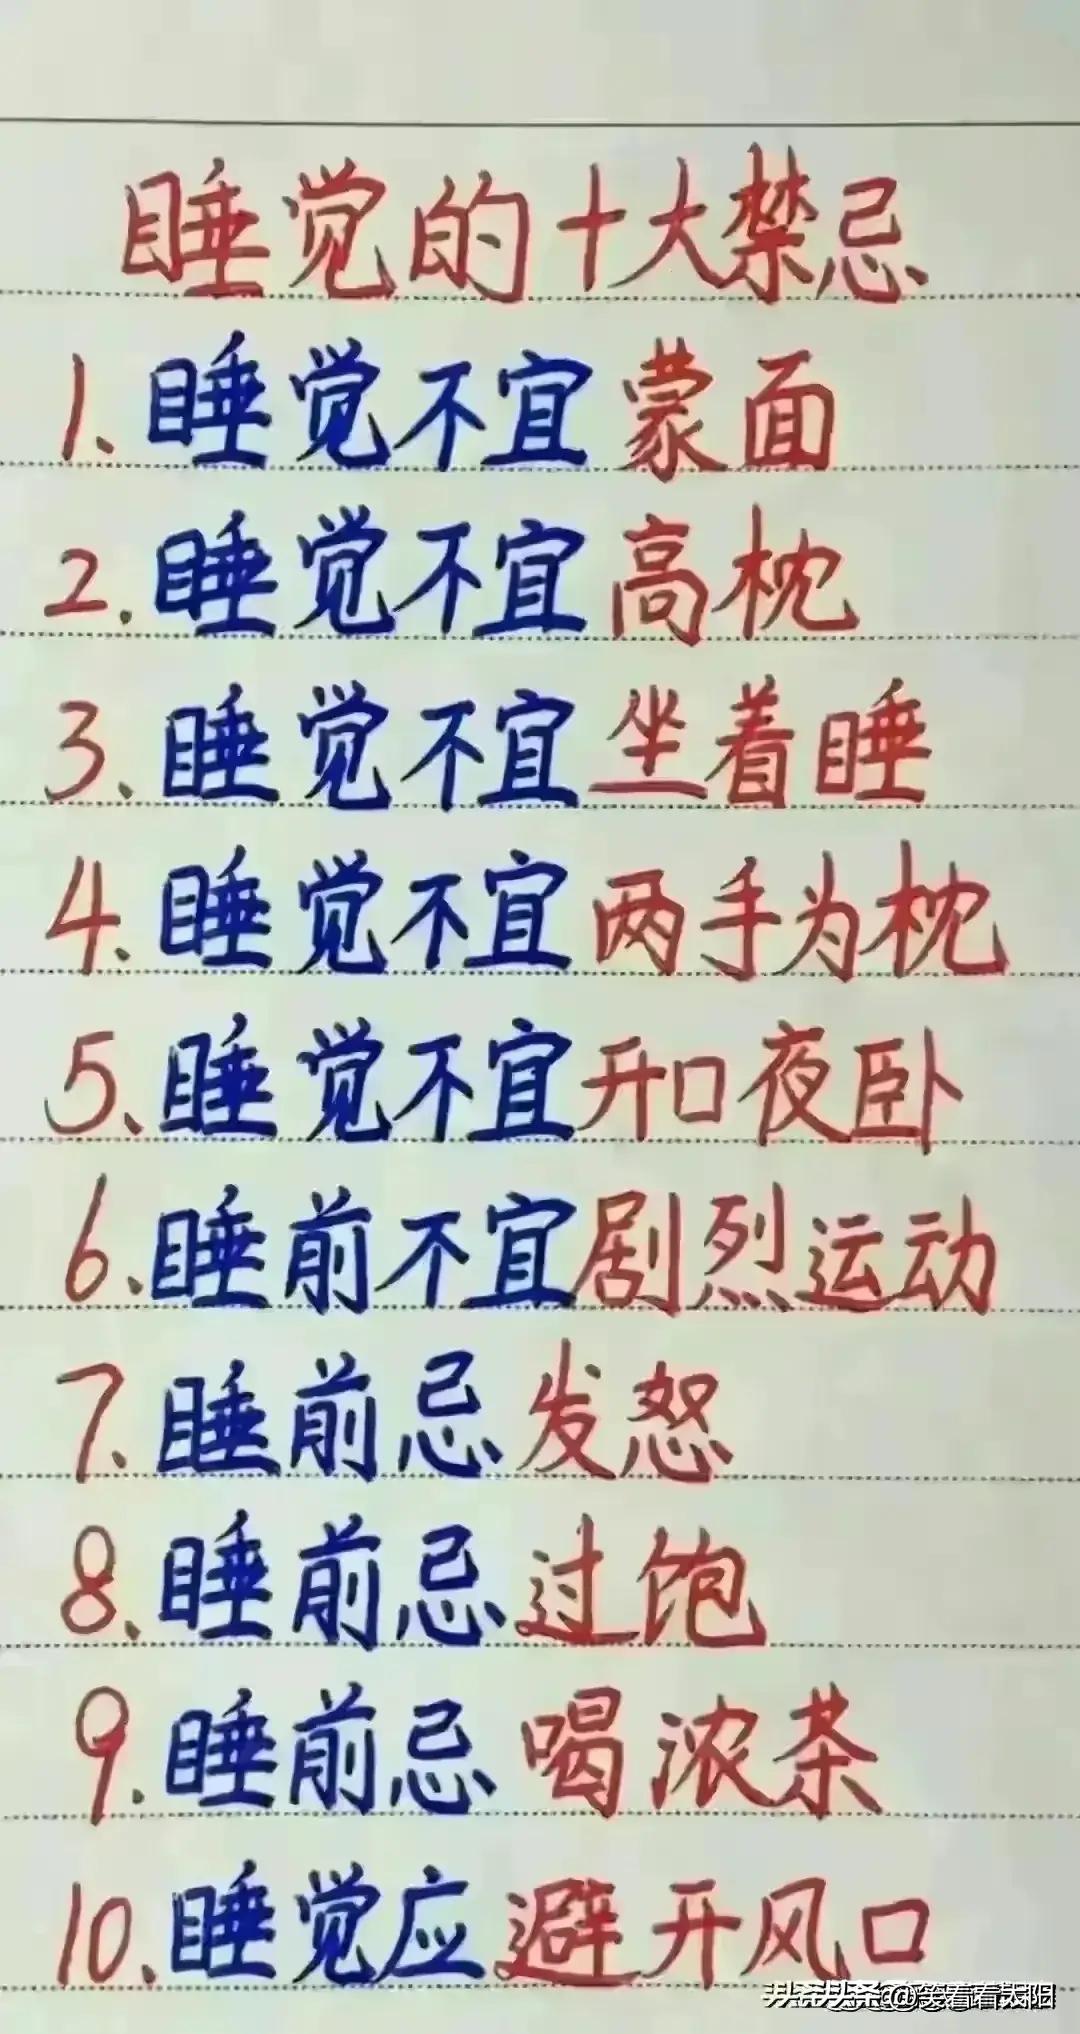 睡觉的十大禁忌
1、睡觉不宜蒙面
2.睡觉不宜高枕
3、睡觉不宜坐着睡
4、睡觉不宜两手为枕
5、睡觉不宜开口夜卧
6.睡前不宜剧烈运动
7、睡前忌发怒
8、睡前忌过饱
9.睡前忌喝浓茶
10、睡觉应避开风口